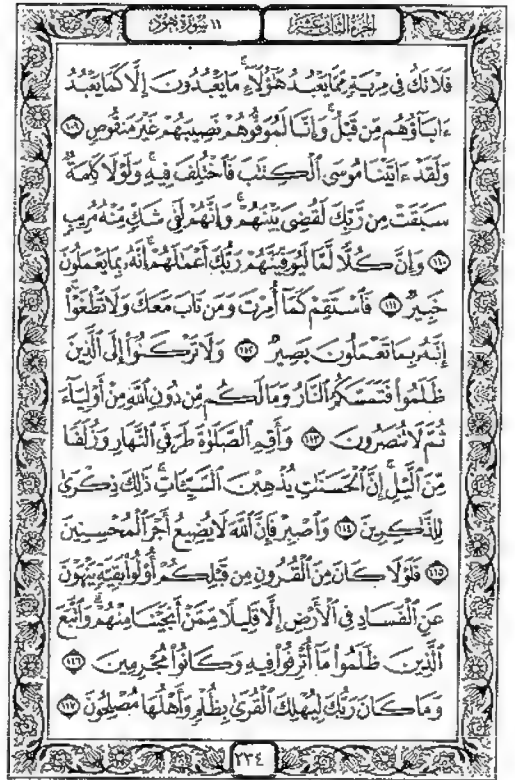 الجزء الثاني عشر
١١ سورة هود
فَلَا تَكُ فِي مِرْيَةٍ مِّمَّا يَعْبُدُ هَٰؤُلَاءِ ۚ مَا يَعْبُدُونَ إِلَّا كَمَا يَعْبُدُ
ءَابَآؤُهُم مِّن قَبْلُ ۚ وَإِنَّا لَمُوَفُّوهُمْ نَصِيبَهُمْ غَيْرَ مَنقُوصٍ ١٠٩
وَلَقَدْ ءَاتَيْنَا مُوسَى ٱلْكِتَٰبَ فَٱخْتُلِفَ فِيهِ ۚ وَلَوْلَا كَلِمَةٌ
سَبَقَتْ مِن رَّبِّكَ لَقُضِيَ بَيْنَهُمْ ۚ وَإِنَّهُمْ لَفِي شَكٍّ مِّنْهُ مُرِيبٍ
١١٠ وَإِنَّ كُلًّا لَّمَّا لَيُوَفِّيَنَّهُمْ رَبُّكَ أَعْمَٰلَهُمْ ۚ إِنَّهُۥ بِمَا يَعْمَلُونَ
خَبِيرٌ ١١١ فَٱسْتَقِمْ كَمَآ أُمِرْتَ وَمَن تَابَ مَعَكَ وَلَا تَطْغَوْا۟ ۚ
إِنَّهُۥ بِمَا تَعْمَلُونَ بَصِيرٌ ١١٢ وَلَا تَرْكَنُوٓا۟ إِلَى ٱلَّذِينَ
ظَلَمُوا۟ فَتَمَسَّكُمُ ٱلنَّارُ وَمَا لَكُم مِّن دُونِ ٱللَّهِ مِنْ أَوْلِيَآءَ
ثُمَّ لَا تُنصَرُونَ ١١٣ وَأَقِمِ ٱلصَّلَوٰةَ طَرَفَيِ ٱلنَّهَارِ وَزُلَفًا
مِّنَ ٱلَّيْلِ ۚ إِنَّ ٱلْحَسَنَٰتِ يُذْهِبْنَ ٱلسَّيِّـَٔاتِ ۚ ذَٰلِكَ ذِكْرَىٰ
لِلذَّٰكِرِينَ ١١٤ وَٱصْبِرْ فَإِنَّ ٱللَّهَ لَا يُضِيعُ أَجْرَ ٱلْمُحْسِنِينَ
١١٥ فَلَوْلَا كَانَ مِنَ ٱلْقُرُونِ مِن قَبْلِكُمْ أُو۟لُوا۟ بَقِيَّةٍ يَنْهَوْنَ
عَنِ ٱلْفَسَادِ فِي ٱلْأَرْضِ إِلَّا قَلِيلًا مِّمَّنْ أَنجَيْنَا مِنْهُمْ ۗ وَٱتَّبَعَ
ٱلَّذِينَ ظَلَمُوا۟ مَآ أُتْرِفُوا۟ فِيهِ وَكَانُوا۟ مُجْرِمِينَ ١١٦
وَمَا كَانَ رَبُّكَ لِيُهْلِكَ ٱلْقُرَىٰ بِظُلْمٍ وَأَهْلُهَا مُصْلِحُونَ ١١٧
٢٣٤